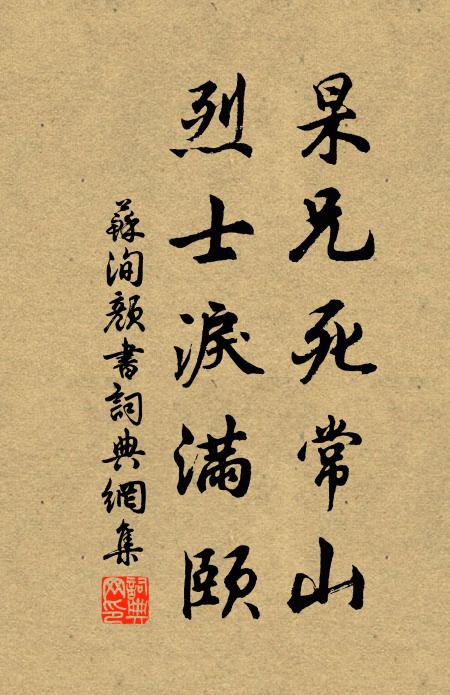 杲兄死常山
烈士淚滿頤
蘇洵顏書詞典網集
詞典网印